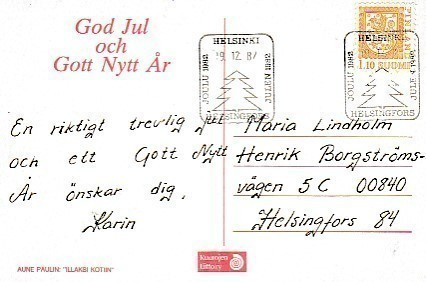 God Jul
och
Gott Nytt År
HELSINKI
JOULU 1982
19.12.82
JULEN 1982
HELSINGFORS
HELSINKI
1,10 SUOMI
JOULU 1982
HELSINGFORS
En riktigt trevlig jul
och ett Gott Nytt
År önskar dig,
Karin
Maria Lindholm
Henrik Borgströms-
vägen 5 C 00840
Helsingfors 84
AUNE PAULIN: "ILLAKSI KOTIIN"